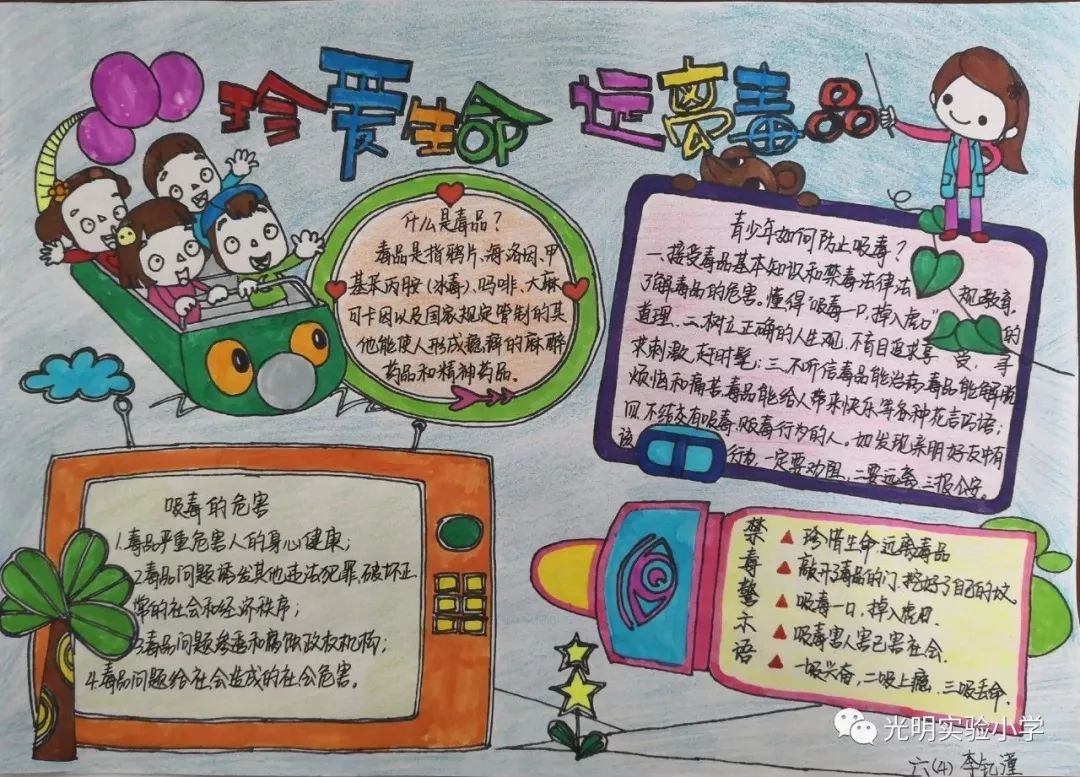 珍爱生命 远离毒品
什么是毒品?
毒品是指鸦片、海洛因、甲
基苯丙胺(冰毒)、吗啡、大麻
可卡因以及国家规定管制的其
他能使人形成瘾癖的麻醉
药品和精神药品。
青少年如何防止吸毒?
一、接受毒品基本知识和禁毒法律法规教育,
了解毒品的危害。懂得"吸毒一口,掉入虎口"的
道理,二、树立正确的人生观,不盲目追求享受,寻
求刺激,赶时髦;三、不听信毒品能治病,毒品能解脱
烦恼和痛苦,毒品能给人带来快乐等各种花言巧语;
四、不结交有吸毒、贩毒行为的人。如发现亲朋好友中有
该行为,一定要劝阻,二要远离,三报公安。
吸毒的危害
1.毒品严重危害人的身心健康;
2.毒品问题诱发其他违法犯罪,破坏正
常的社会和经济秩序;
3.毒品问题渗透和腐蚀政权机构;
4.毒品问题给社会造成的社会危害。
禁毒警示语
▲ 珍惜生命,远离毒品
▲ 敲开了毒品的门,挖好了自己的坟
▲ 吸毒一口,掉入虎口.
▲ 吸毒害人害己害社会.
▲ 一吸兴奋,二吸上瘾,三吸丢命.
光明实验小学
六(4) 李